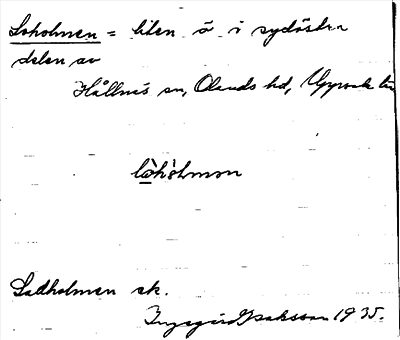 Loholmen = liten ö i sydöstra
delen av
Hållnäs sn, Olands hd, Uppsala län
Ladholmen ek.
Ingegärd Isaksson 1935.